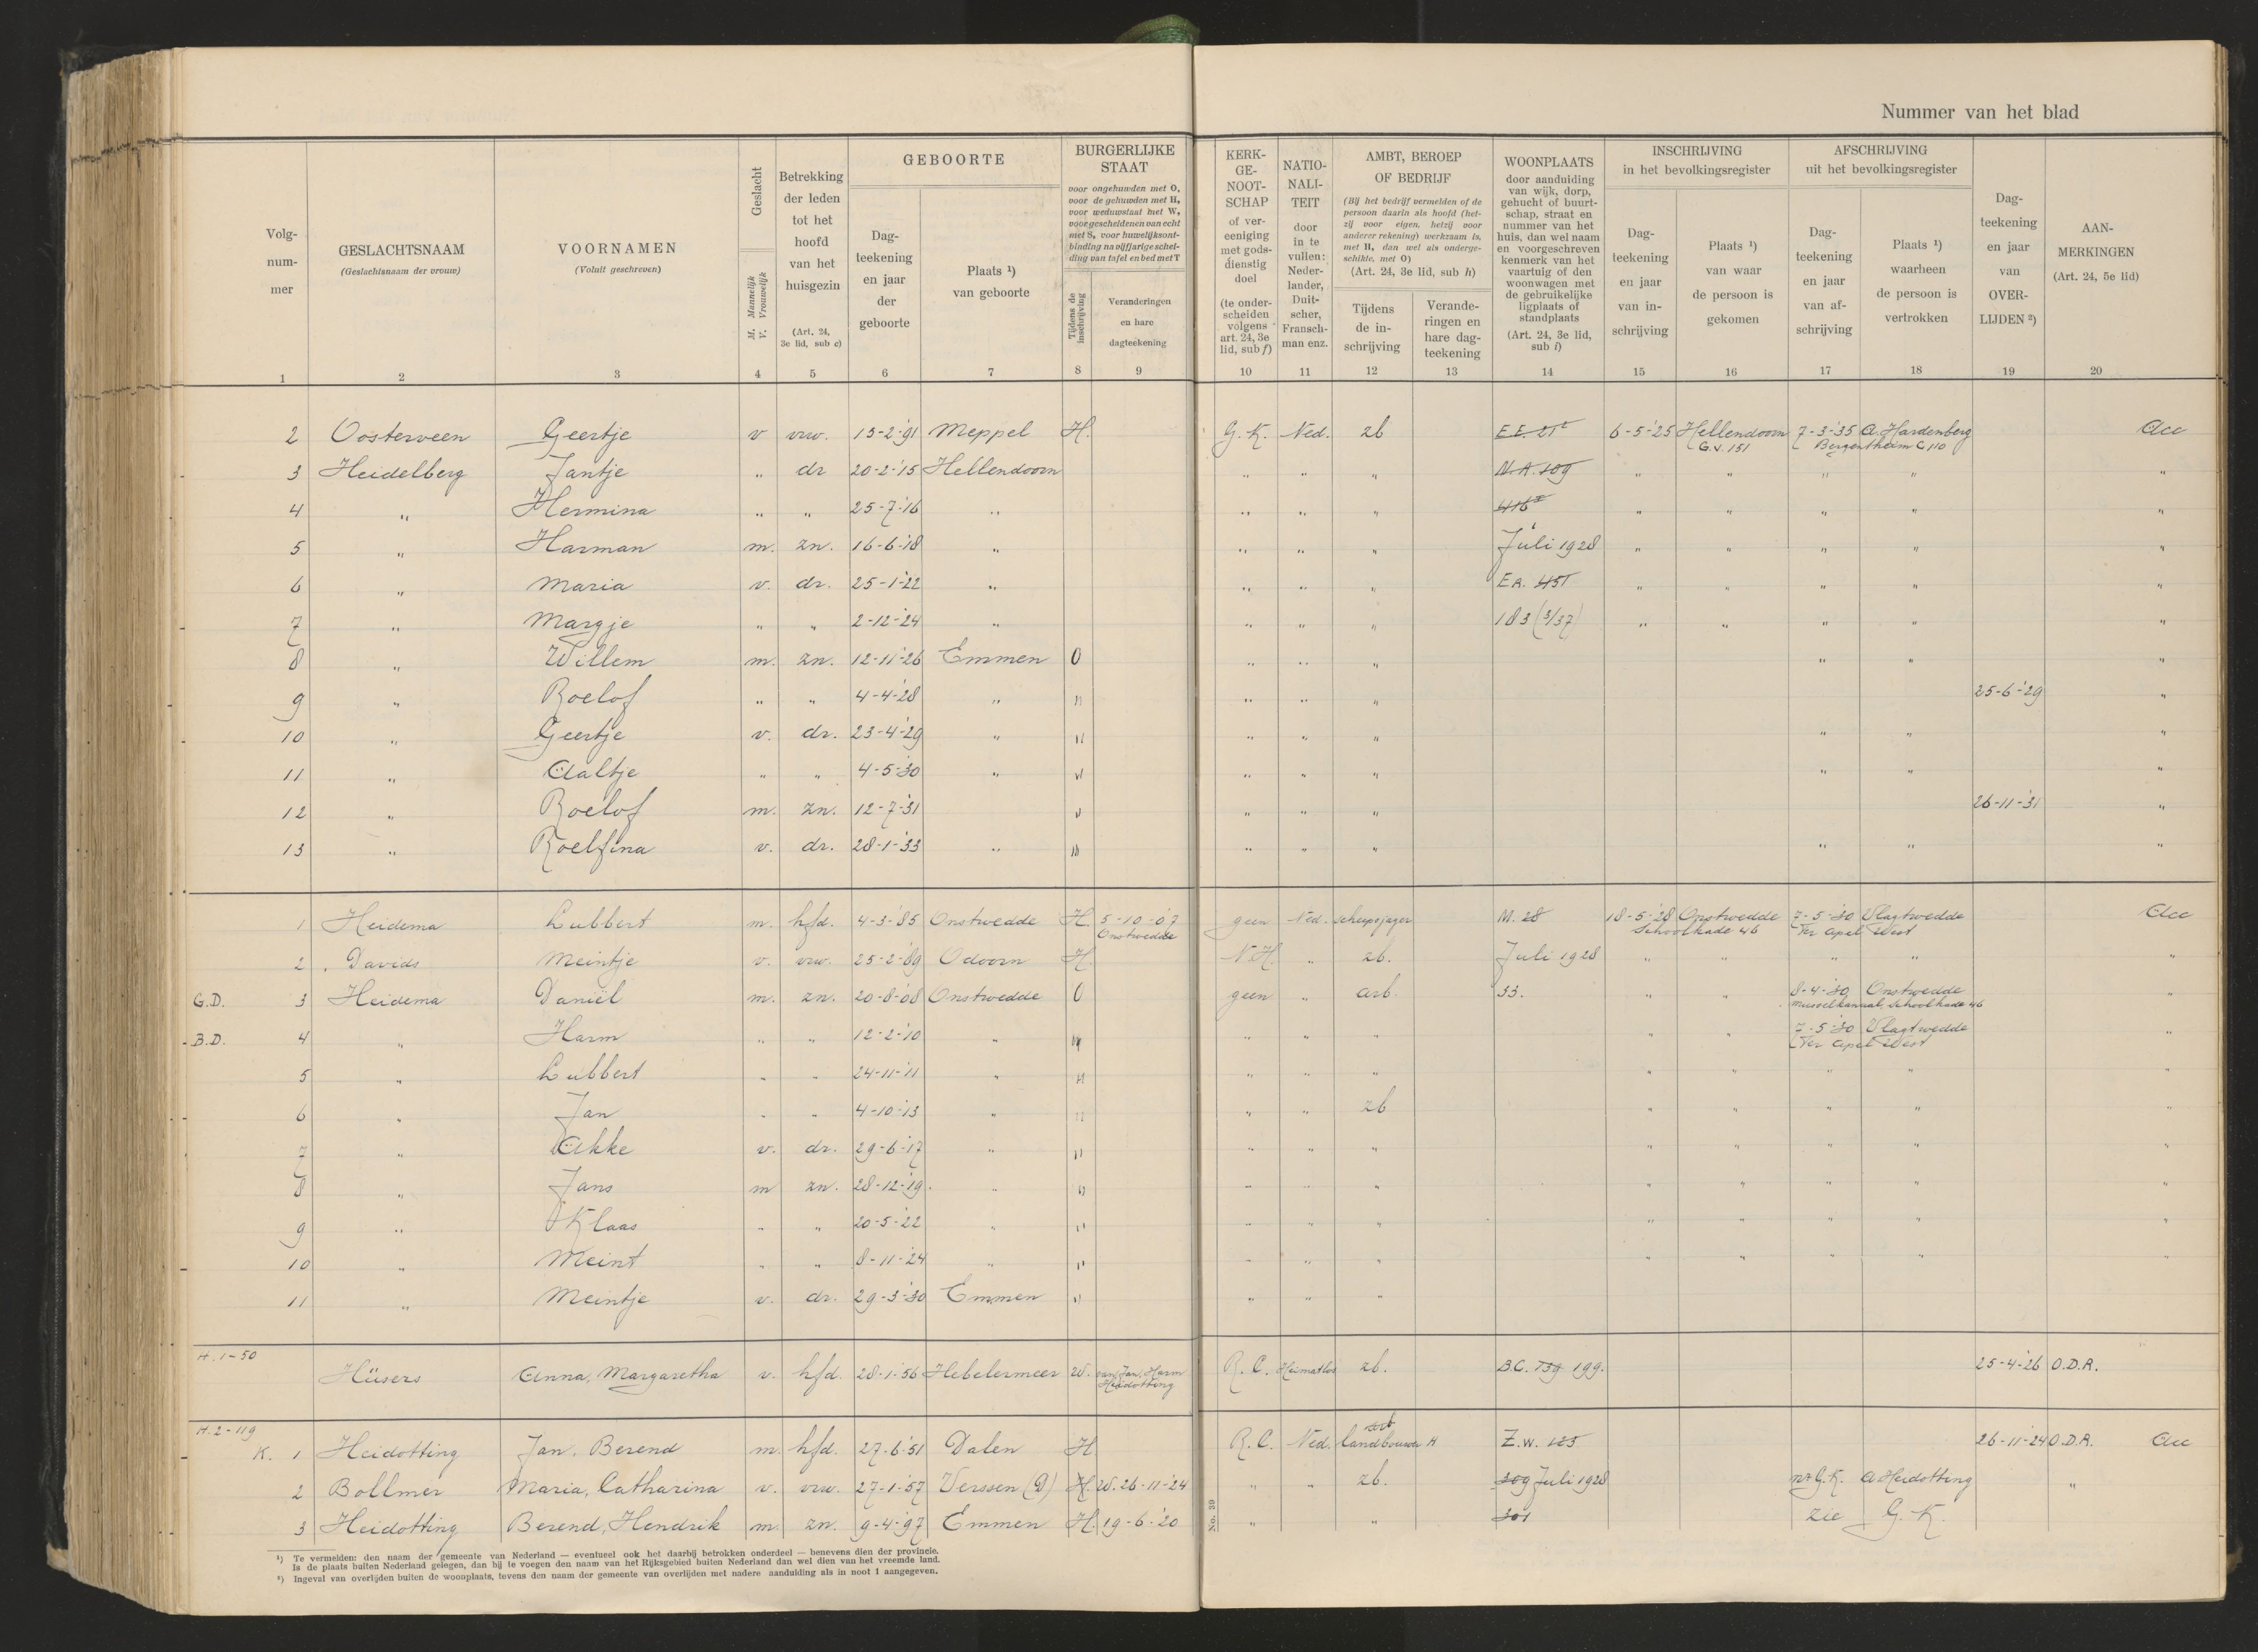 Nummer van het blad
Volg-
num-
mer
1
GESLACHTSNAAM
(Geslachtsnaam der vrouw)
2
VOORNAMEN
(Voluit geschreven)
3
Geslacht
M. Mannelijk
V. Vrouwelijk
4
Betrekking
der leden
tot het
hoofd
van het
huisgezin
(Art. 24,
3e lid, sub c)
5
GEBOORTE
Dag-
teekening
en jaar
der
geboorte
6
Plaats ¹)
van geboorte
7
BURGERLIJKE
STAAT
voor ongehuwden met O,
voor de gehuwden met H,
voor weduwstaat met W,
voor gescheidenen van echt
met S, voor huwelijksont-
binding na vijfjarige schei-
ding van tafel en bed met T
Tijdens de
inschrijving
8
Veranderingen
en hare
dagteekening
9
KERK-
GE-
NOOT-
SCHAP
of ver-
eeniging
met gods-
dienstig
doel
(te onder-
scheiden
volgens
art. 24, 3e
lid, sub f)
10
NATIO-
NALI-
TEIT
door
in te
vullen:
Neder-
lander,
Duit-
scher,
Fransch-
man enz.
11
AMBT, BEROEP
OF BEDRIJF
(Bij het bedrijf vermelden of de
persoon daarin als hoofd (het-
zij voor eigen, hetzij voor
anderer rekening) werkzaam is,
met H, dan wel als onderge-
schikte, met O)
(Art. 24, 3e lid, sub h)
Tijdens
de in-
schrijving
12
Verande-
ringen en
hare dag-
teekening
13
WOONPLAATS
door aanduiding
van wijk, dorp,
gehucht of buurt-
schap, straat en
nummer van het
huis, dan wel naam
en voorgeschreven
kenmerk van het
vaartuig of den
woonwagen met
de gebruikelijke
ligplaats of
standplaats
(Art. 24, 3e lid,
sub i)
14
INSCHRIJVING
in het bevolkingsregister
Dag-
teekening
en jaar
van in-
schrijving
15
Plaats ¹)
van waar
de persoon is
gekomen
16
AFSCHRIJVING
uit het bevolkingsregister
Dag-
teekening
en jaar
van af-
schrijving
17
Plaats ¹)
waarheen
de persoon is
vertrokken
18
Dag-
teekening
en jaar
van
OVER-
LIJDEN ²)
19
AAN-
MERKINGEN
(Art. 24, 5e lid)
20
2 Oosterveen Geertje v vrw. 15-2-'91 Meppel H. G.K. Ned. zb 6-5-'25 Hellendoorn 7-3-'35 A. Hardenberg Acc
G.V. 151 Bergentheim C 110
3 Heidelberg Jantje " dr 20-2-'15 Hellendoorn " " " N.A. 109 " " " " "
4 " Hermina " " 25-7-'16 " " " " 416 " " " " "
5 " Harman m. zn. 16-6-'18 " " " " Juli 1928 " " " " "
6 " Maria v. dr. 25-1-'22 " " " " EA. 451 " " " " "
7 " Margje " " 2-12-'24 " " " " 183 (3/37) " " " " "
8 " Willem m. zn. 12-11-'26 Emmen O " " " " " "
9 " Roelof " " 4-4-'28 " " " " " 25-6-'29 "
10 " Geertje v. dr. 23-4-'29 " " " " " " " "
11 " Aaltje " " 4-5-'30 " " " " " " " "
12 " Roelof m. zn. 12-7-'31 " " " " 26-11-'31 "
13 " Roelfina v. dr. 28-1-'33 " " " " " " " "
1 Heidema Lubbert m. hfd. 4-3-'85 Onstwedde H. 5-10-'07 geen Ned. scheepsjager M. 28 18-5-'28 Onstwedde 7-5-'30 Vlagtwedde Acc
Onstwedde Schoolkade 46 Ter Apel West
2 Davids Meintje v. vrw. 25-2-'89 Odoorn H N.H. " zb. Juli 1928 " " " " "
G.D. 3 Heidema Daniël m. zn. 20-8-'08 Onstwedde O geen " arb. 33. " " 8-4-'30 Onstwedde "
Musselkanaal, Schoolkade 46
B.D. 4 " Harm " " 12-2-'10 " " " " " " " 7-5-'30 Vlagtwedde "
Ter Apel West
5 " Lubbert " " 24-11-'11 " " " " " " " " "
6 " Jan " " 4-10-'13 " " " " zb " " " " "
7 " Akke v. dr. 29-6-'17 " " " " " " " " " "
8 " Jans m zn. 28-12-'19 " " " " " " " " " "
9 " Klaas " " 20-5-'22 " " " " " " " " " "
10 " Meint " " 8-11-'24 " " " " " " " " " "
11 " Meintje v. dr. 29-3-'30 Emmen " " " "
H. 1-50
Hüsers Anna, Margaretha v. hfd. 28-1-'56 Hebelermeer W. van Jan, Harm R.C. Heimatlos zb. B.C. 139 199. 25-4-'26 O.D.R.
Heidotting
H. 2-119
arb
K. 1 Heidotting Jan, Berend m. hfd. 27-6-'51 Dalen H R.C. Ned. landbouwer H Z.W. 125 26-11-'24 O.D.R. Acc
2 Bollmer Maria, Catharina v. vrw. 27-1-'57 Versen (D) H. W. 26-11-'24 " " zb. 209 Juli 1928 nr G.K. A Heidotting "
3 Heidotting Berend, Hendrik m. zn. 9-4-'97 Emmen H. 19-6-'20 " " 201 zie G.K.
No. 30
¹) Te vermelden: den naam der gemeente van Nederland — eventueel ook het daarbij betrokken onderdeel — benevens dien der provincie.
Is de plaats buiten Nederland gelegen, dan bij te voegen den naam van het Rijksgebied buiten Nederland dan wel dien van het vreemde land.
²) Ingeval van overlijden buiten de woonplaats, tevens den naam der gemeente van overlijden met nadere aanduiding als in noot 1 aangegeven.